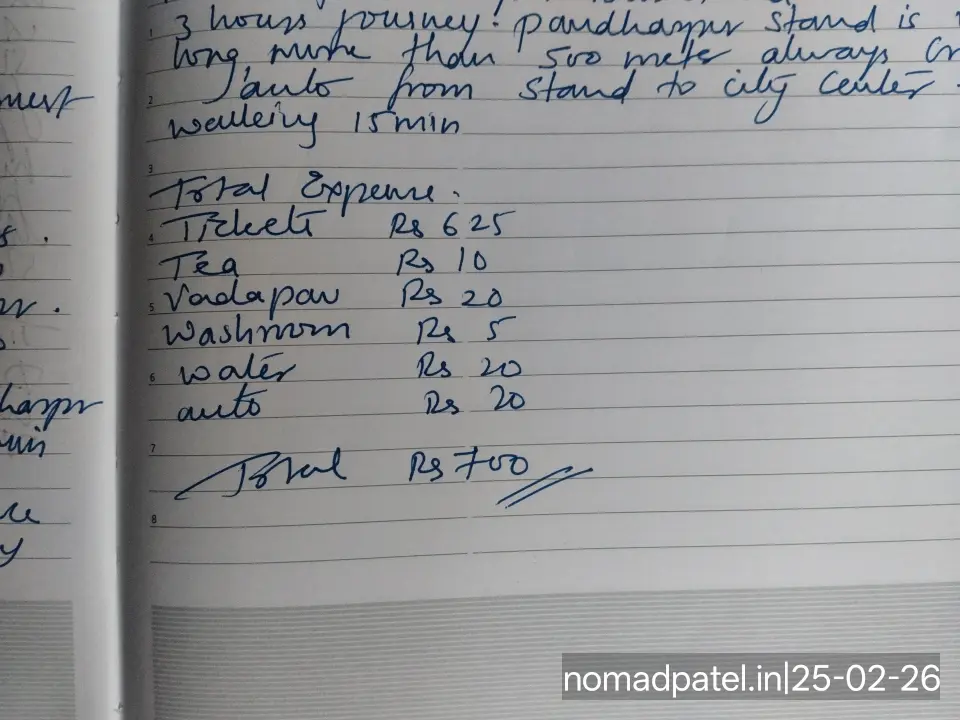 3 hours journey! pandharpur stand is
long, more than 500 meter always
auto from stand to city center
walking 15 min
Total Expense.
Tickets Rs 625
Tea Rs 10
Vadapav Rs 20
Washroom Rs 5
water Rs 20
auto Rs 20
Total Rs 700
nomadpatel.in|25-02-26